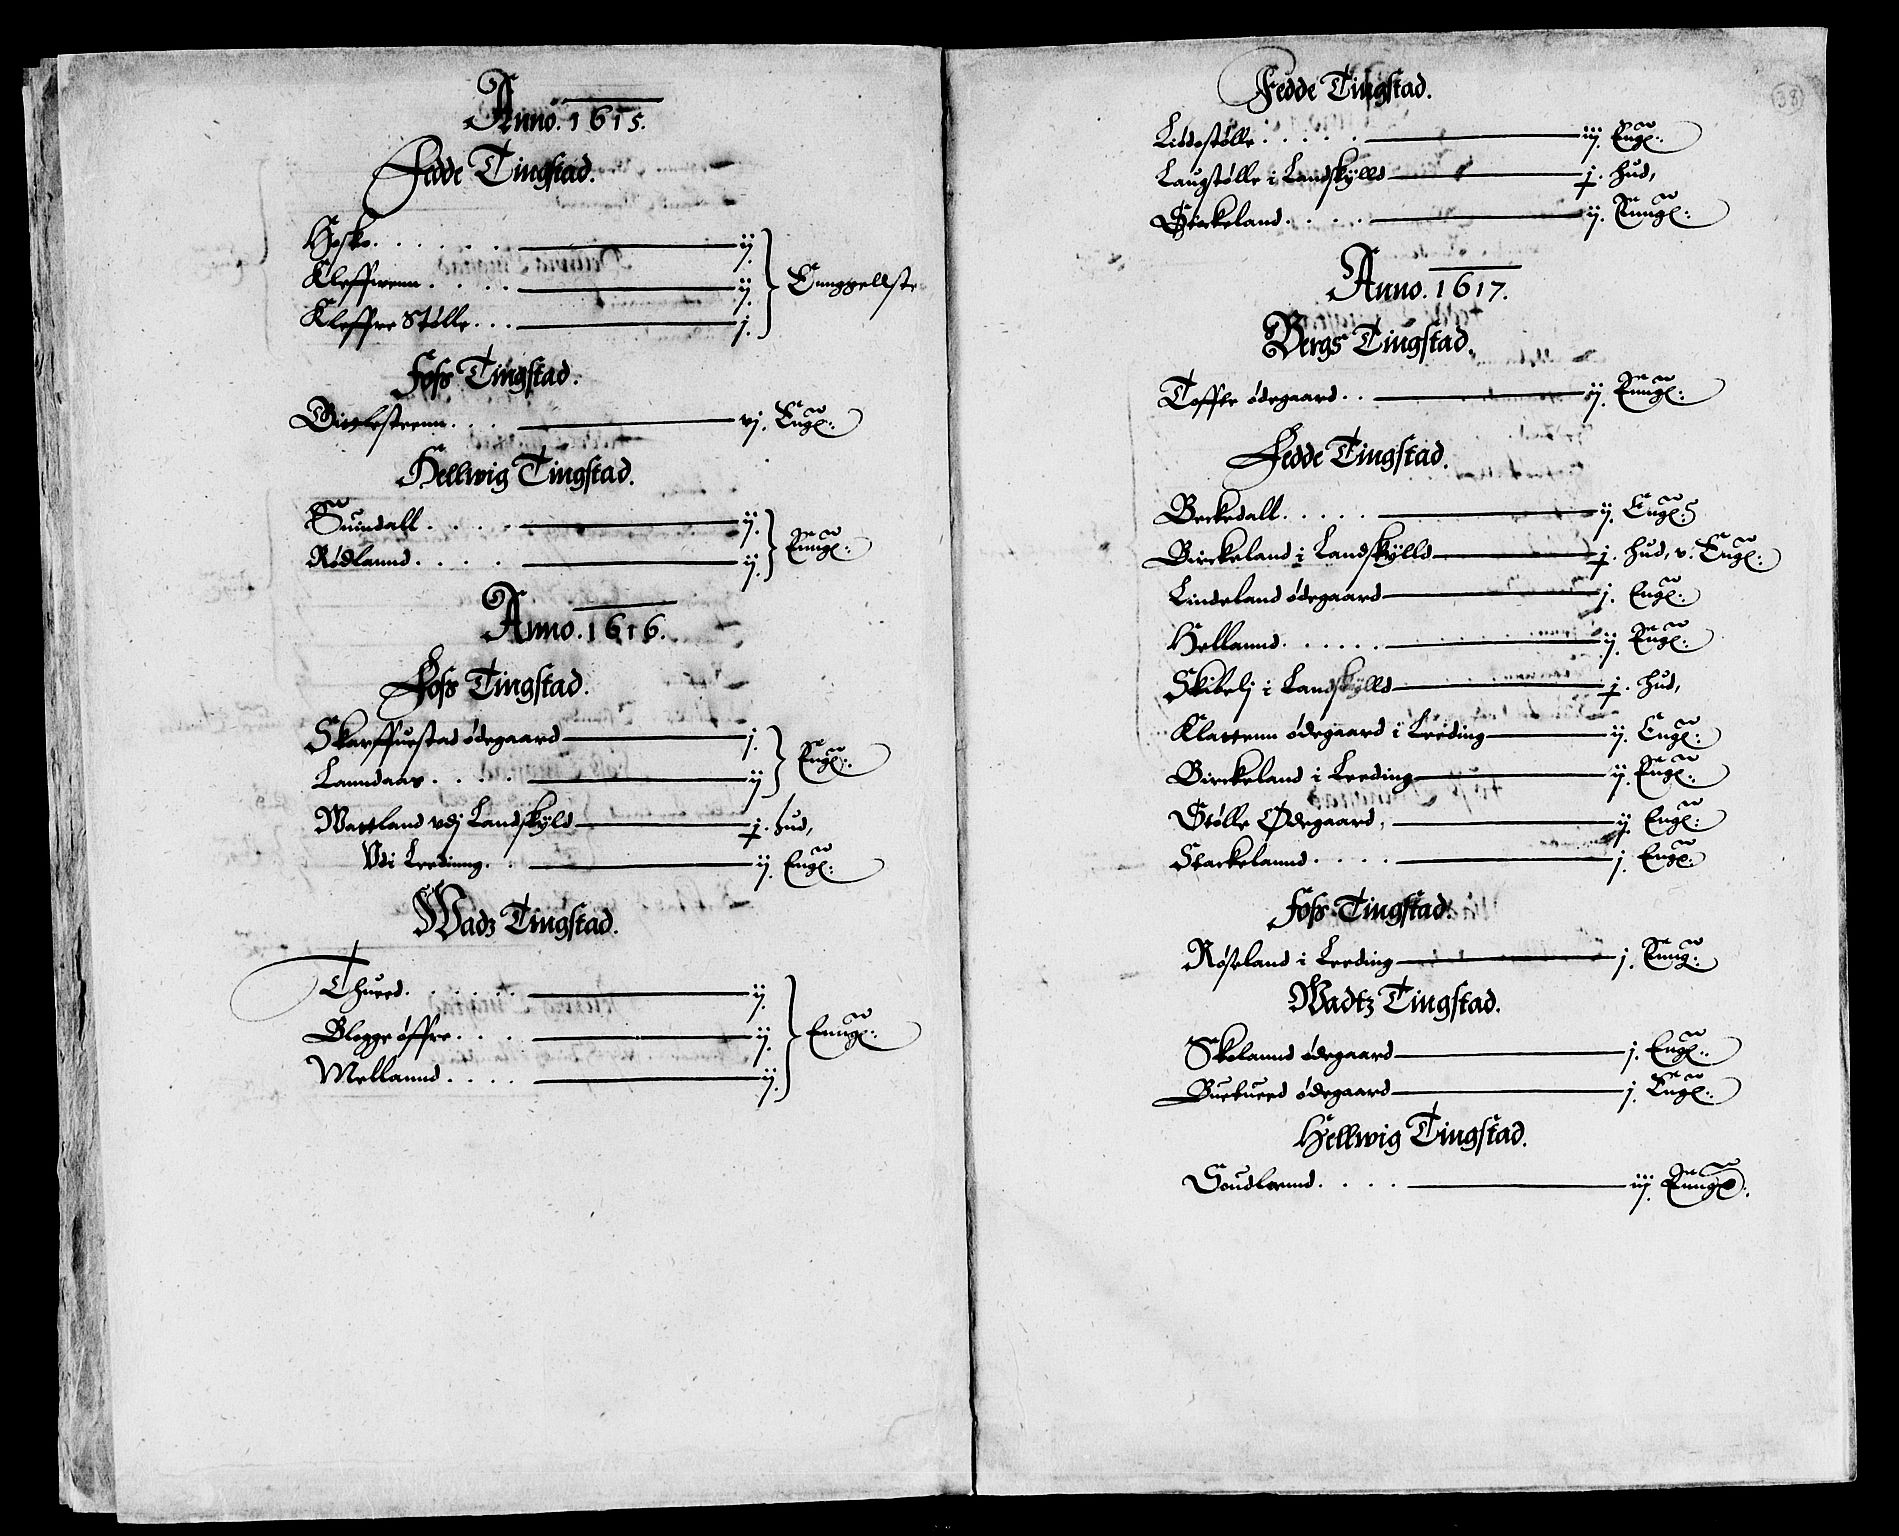 Anno. 1615.
Fedde Tingstad.
Heske . . . . . . ij.
Kleffwenn . . . . ij.
Kleffre Stølle . . . j.
Foss Tingstad.
Girlestrenn . . . . vj. Engl:
Hellwig Tingstad.
Suindall . . . . ij.
Rødlannd . . . . ij. Enngl:
Anno. 1616.
Foss Tingstad.
Skarffuestad ødegaard j.
Lanndaas . . . . ij Engl:
Wattland vdj Landskyld j. hud,
Vdi Leedinng. . ij Engl:
Wadz Tingstad.
Thued. . . . . . ij.
Blegge øffre . . . . ij. Enngl:
Mellannd . . . . ij.
38
Fedde Tingstad.
Liddestølle . . . . . iij Engl:
Laugstølle i Landskylld j. hud,
Birkeland . . . . ij. Enngl:
Anno. 1617.
Bergs Tingstad.
Toffte ødegaard . . ij Enngl:
Fedde Tingstad.
Beckedall . . . . . ij. Engl:
Birckeland i Landskylld j. hud, v. Engl:
Lindeland ødegaard j. Engl:
Helland . . . . . . ij Engl:
Skibelj i Landskylld j. hud,
Klattenn ødegaard i Leeding ij. Engl:
Birckeland i Leeding ij. Engl:
Stølle Ødegaard. ij Engl:
Stackelannd . . . . j Engl:
Foss Tingstad.
Røseland i Leeding j. Enng:
Wadtz Tingstad.
Skolannd ødegaard j. Engl:
Buetued ødegaard j. Engl:
Hellwig Tingstad.
Soudland . . . . iij Enngl: